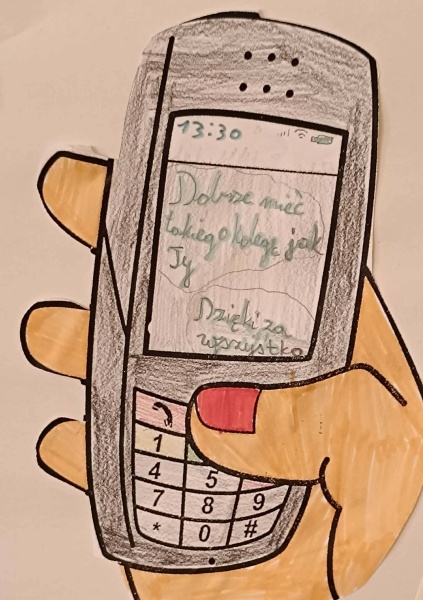 13:30
Dobrze mieć
takiego kolegę jak
Ty
Dzięki za
wszystko
1
4 5
7 8 9
* 0 #